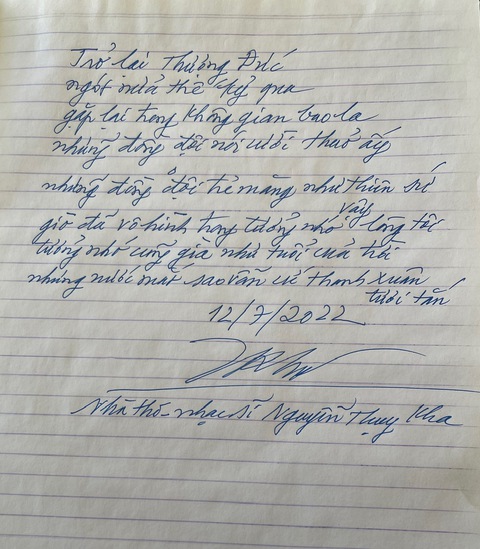 Trở lại Thượng Đức
ngót nửa thế kỷ qua
gặp lại trong không gian bao la
những đồng đội nói cười thuở ấy
những đồng đội trẻ măng như thiên sứ
giờ đã vô hình trong tưởng nhớ vây lòng tôi
tưởng nhớ cũng già như tuổi của tôi
nhưng nước mắt sao vẫn cứ thanh xuân
tươi tắn
12/7/2022
Nhà thơ nhạc sĩ Nguyễn Thụy Kha